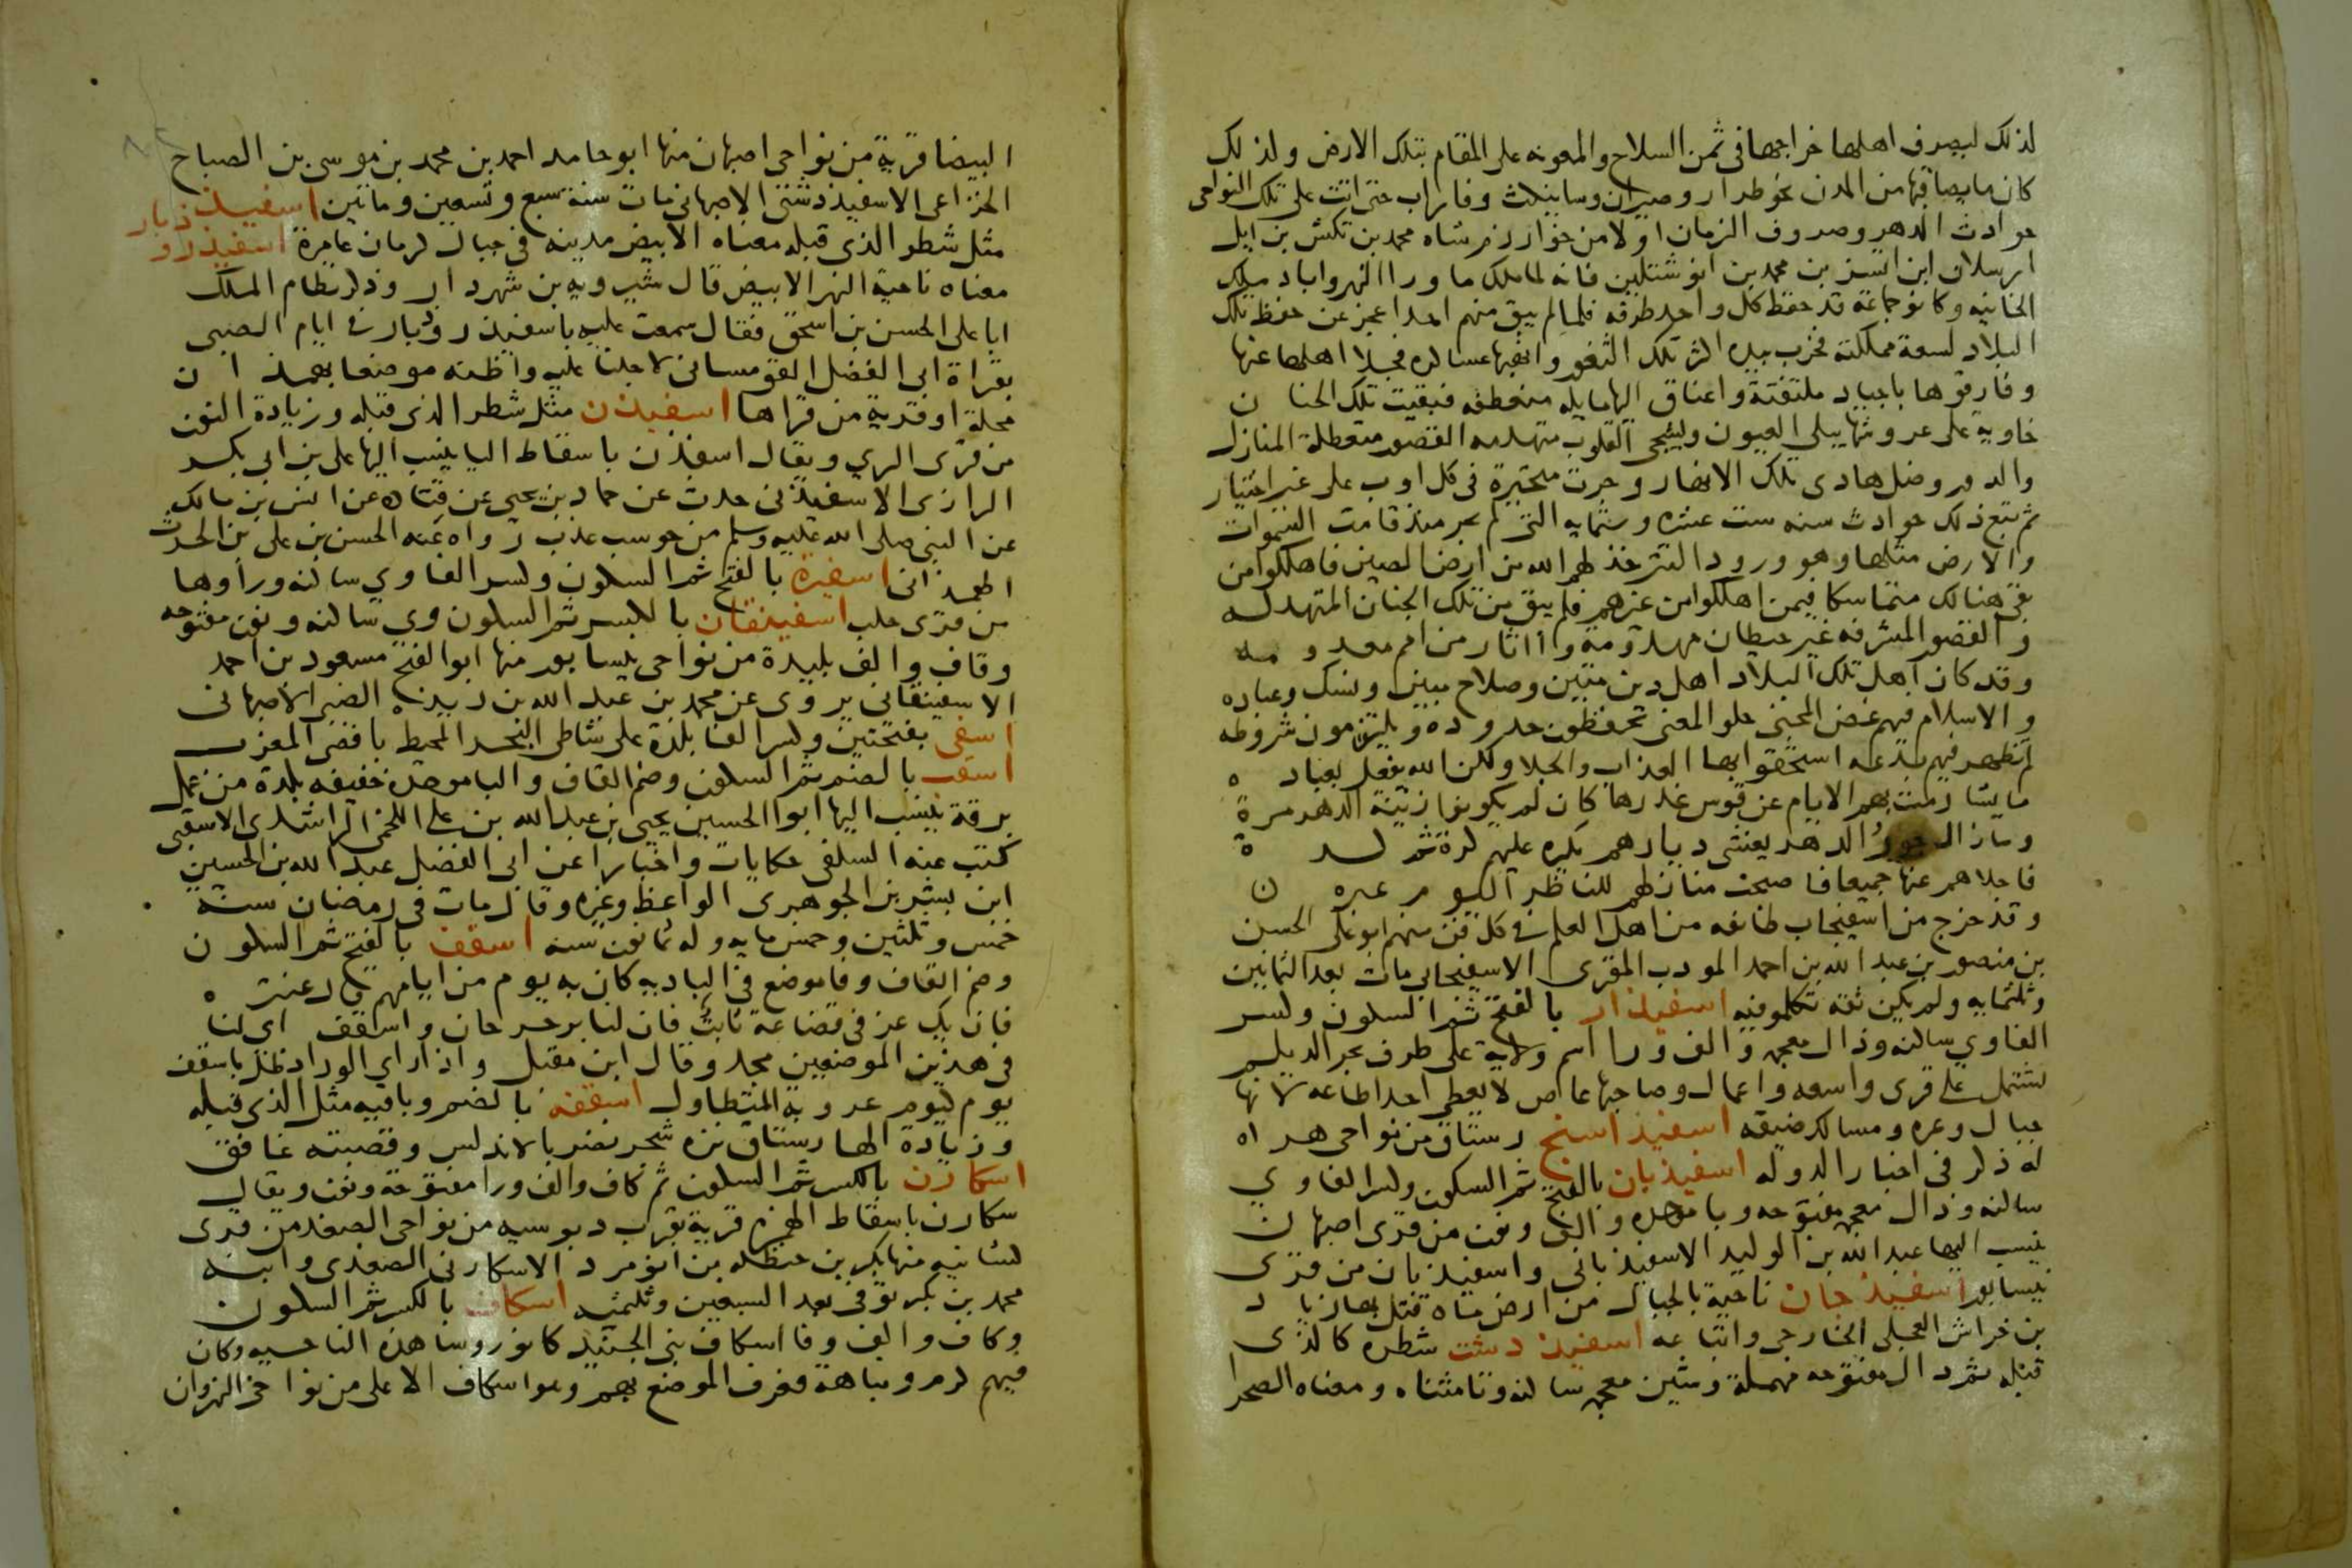 لذلك ليصرف اهلها خراجها فى ثمن السلاح والمعونه على المقام بتلك الارض ولذلك
كان ما يصاقبها من المدن نحو طرار وصبران وسانيكث وفاراب حتى اتت على تلك النواحى
حوادث الدهر وصروف الزمان اولا من خوارزم شاه محمد بن تكش بن ايل
ارسلان ابن اتسز بن محمد بن انوشتكين فانه لما ملك ما ورا النهر واباد ملك
الخانيه وكانو جماعة قد حفظ كل واحد طرفه فلما لم يبق منهم احدا عجز عن حفظ تلك
البلاد لسعة مملكته فخرب بيده اكثر تلك الثغور وانهبها عساكره فجلا اهلها عنها
وفارقوها باجياد ملتفتة واعناق اليها مايله منعطفه فبقيت تلك الجنان
خاوية على عروشها يبكى العيون ويشجى القلوب متهدمه القصور متعطلة المنازل
والدور وضل هادى تلك الانهار وجرت متحيرة فى كل اوب على غير اختيار
ثم تبع ذلك حوادث سنه ست عشره وستمايه التى لم يجر منذ قامت السموات
والارض مثلها وهو ورود التتر خذلهم الله من ارض الصين فاهلكوا من
بقى هنالك متماسكا فيمن اهلكوا من غيرهم فلم يبق من تلك الجنان المتهدله
والقصور المشرفه غير حيطان مهدومة واثار من امم معدومه
وقد كان اهل تلك البلاد اهل دين متين وصلاح مبين ونسك وعباده
والاسلام فيهم غض المجنى حلو المعنى تحفظون حدوده ويلتزمون شروطه
لم تظهر فيهم بدعه استحقوا بها العذاب والجلا ولكن الله يفعل بعباده
ما يشا رمت بهم الايام عن قوس غدرها كان لم يكونوا زينة الدهر مرة
وما زال جور الدهر يغشى ديارهم يكره عليهم كرة ثم كرة
فاجلاهم عنها جميعا فاصبحت منازلهم للناظر اليوم عبره ن
وقد خرج من اسفيجاب طايفه من اهل العلم فى كل فن منهم ابو على الحسن
بن منصور بن عبد الله بن احمد المودب المقرى الاسفيجابى مات بعد الثمانين
وثلثمايه ولم يكن ثقه تكلمو فيه اسفيذار بالفتح ثم السكون وكسر
الفا وي ساكنه وذال معجمه والف ورا اسم ولاية على طرف بحر الديلم
تشتمل على قرى واسعه واعمال وصاحبها عاص لا يعطى احدا طاعه لانها
جبال وعره ومسالك ضيقه اسفيذ اسنج رستاق من نواحى هراه
له ذكر فى اخبار الدوله اسفيذبان بالفتح ثم السكون وكسر الفا وي
ساكنه وذال معجمه مفتوحه وبا موحده والف ونون من قرى اصبهان
ينسب اليها عبد الله بن الوليد الاسفيذبانى واسفيذبان من قرى
نيسابور اسفيذجان ناحية بالجبال من ارض ماه قتل بها زياد
بن خراش العجلى الخارجى واتباعه اسفيذ دشت شطره كالذى
قبله ثم دال مفتوحه مهملة وشين معجمه ساكنه وتا مثناه ومعناه الصحرا
البيضا قرية من نواحى اصبهان منها ابو حامد احمد بن محمد بن موسى بن الصباح
الخزاعى الاسفيذدشتى الاصبهانى مات سنة سبع وتسعين وماتين اسفيذزبار
مثل شطر الذى قبله معناه الابيض مدينه فى جبال كرمان عامرة اسفيذرو
معناه ناحية النهر الابيض قال شيرويه بن شهردار وذكر نظام الملك
ابا على الحسن بن اسحق فقال سمعت عليه باسفيذروذبار فى ايام الصبى
بقراة ابى الفضل القومسانى لاجلنا عليه واظنه موضعا بهمذان
محلة او قرية من قراها اسفيذن مثل شطر الذى قبله وزيادة النون
من قرى الري ويقال اسفذن باسقاط اليا ينسب اليها على بن ابى بكر
الرازى الاسفيذنى حدث عن حماد بن يحيى عن قتاده عن انس بن مالك
عن النبى صلى الله عليه وسلم من حوسب عذب رواه عنه الحسن بن على بن الحرث
الهمذانى اسفيره بالفتح ثم السكون وكسر الفا وي ساكنه ورا وها
من قرى حلب اسفينقان بالكسر ثم السكون وي ساكنه ونون مفتوحه
وقاف والف بليدة من نواحى نيسابور منها ابو الفتح مسعود بن احمد
الاسفينقانى يروى عن محمد بن عبد الله بن زيد الضبى الاصبهانى
اسفى بفتحتين وكسر الفا بلدة على شاطى البحر المحيط باقصى المغرب
اسقب بالضم ثم السكون وضم القاف والبا موحده خفيفه بلدة من عمل
برقة ينسب اليها ابوا الحسين يحيى بن عبد الله بن على اللخمى الراشدى الاسقبى
كتب عنه السلفى حكايات واخبارا عن ابى الفضل عبد الله بن الحسين
ابن بشر بن الجوهرى الواعظ وغيره وقال مات فى رمضان سنة
خمس وثلثين وخمس مايه وله ثمانون سنه اسقف بالفتح ثم السكون
وضم القاف وفا موضع فى الباديه كان به يوم من ايامهم قال عنتره
فان يك عز فى قضاعة ثابت فان لنا برحرحان واسقف اى لنا
فى هذين الموضعين مجد وقال ابن مقبل واذا راى الوراد ظل باسقف
يوم كيوم عروبة المتطاول اسقفه بالضم وباقيه مثل الذى قبله
وزيادة الها رستاق نزه شجر نضر بالاندلس وقصبته غافق
اسكارن بالكسر ثم السكون ثم كاف والف ورا مفتوحة ونون ويقال
سكارن باسقاط الهمزه قرية بقرب دبوسيه من نواحى الصغد من قرى
كشانيه منها بكر بن حنظله بن انومرد الاسكارنى الصغدى وابنه
محمد بن بكر توفى بعد السبعين وثلثمئه اسكاف بالكسر ثم السكون
وكاف والف وفا اسكاف بنى الجنيد كانو روسا هذه الناحيه وكان
فيهم كرم ونباهة فعرف الموضع بهم وهو اسكاف الاعلى من نواحى النهروان